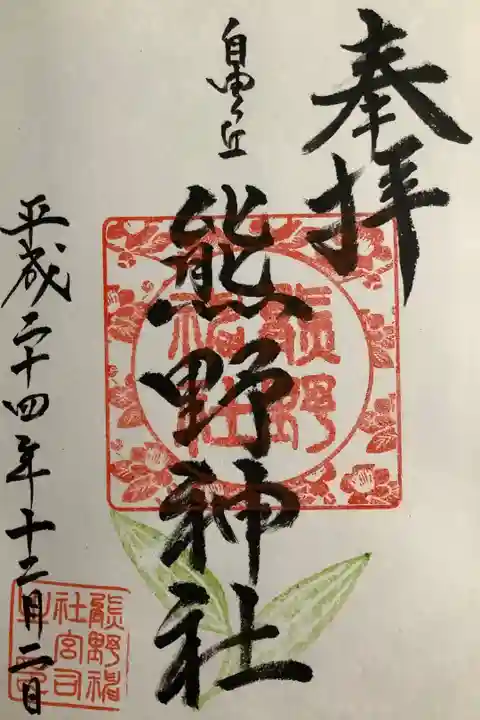 奉拝
自由ヶ丘
熊野神社
平成二十四年十二月二日
熊野
福社
熊野福
社宮司
之印